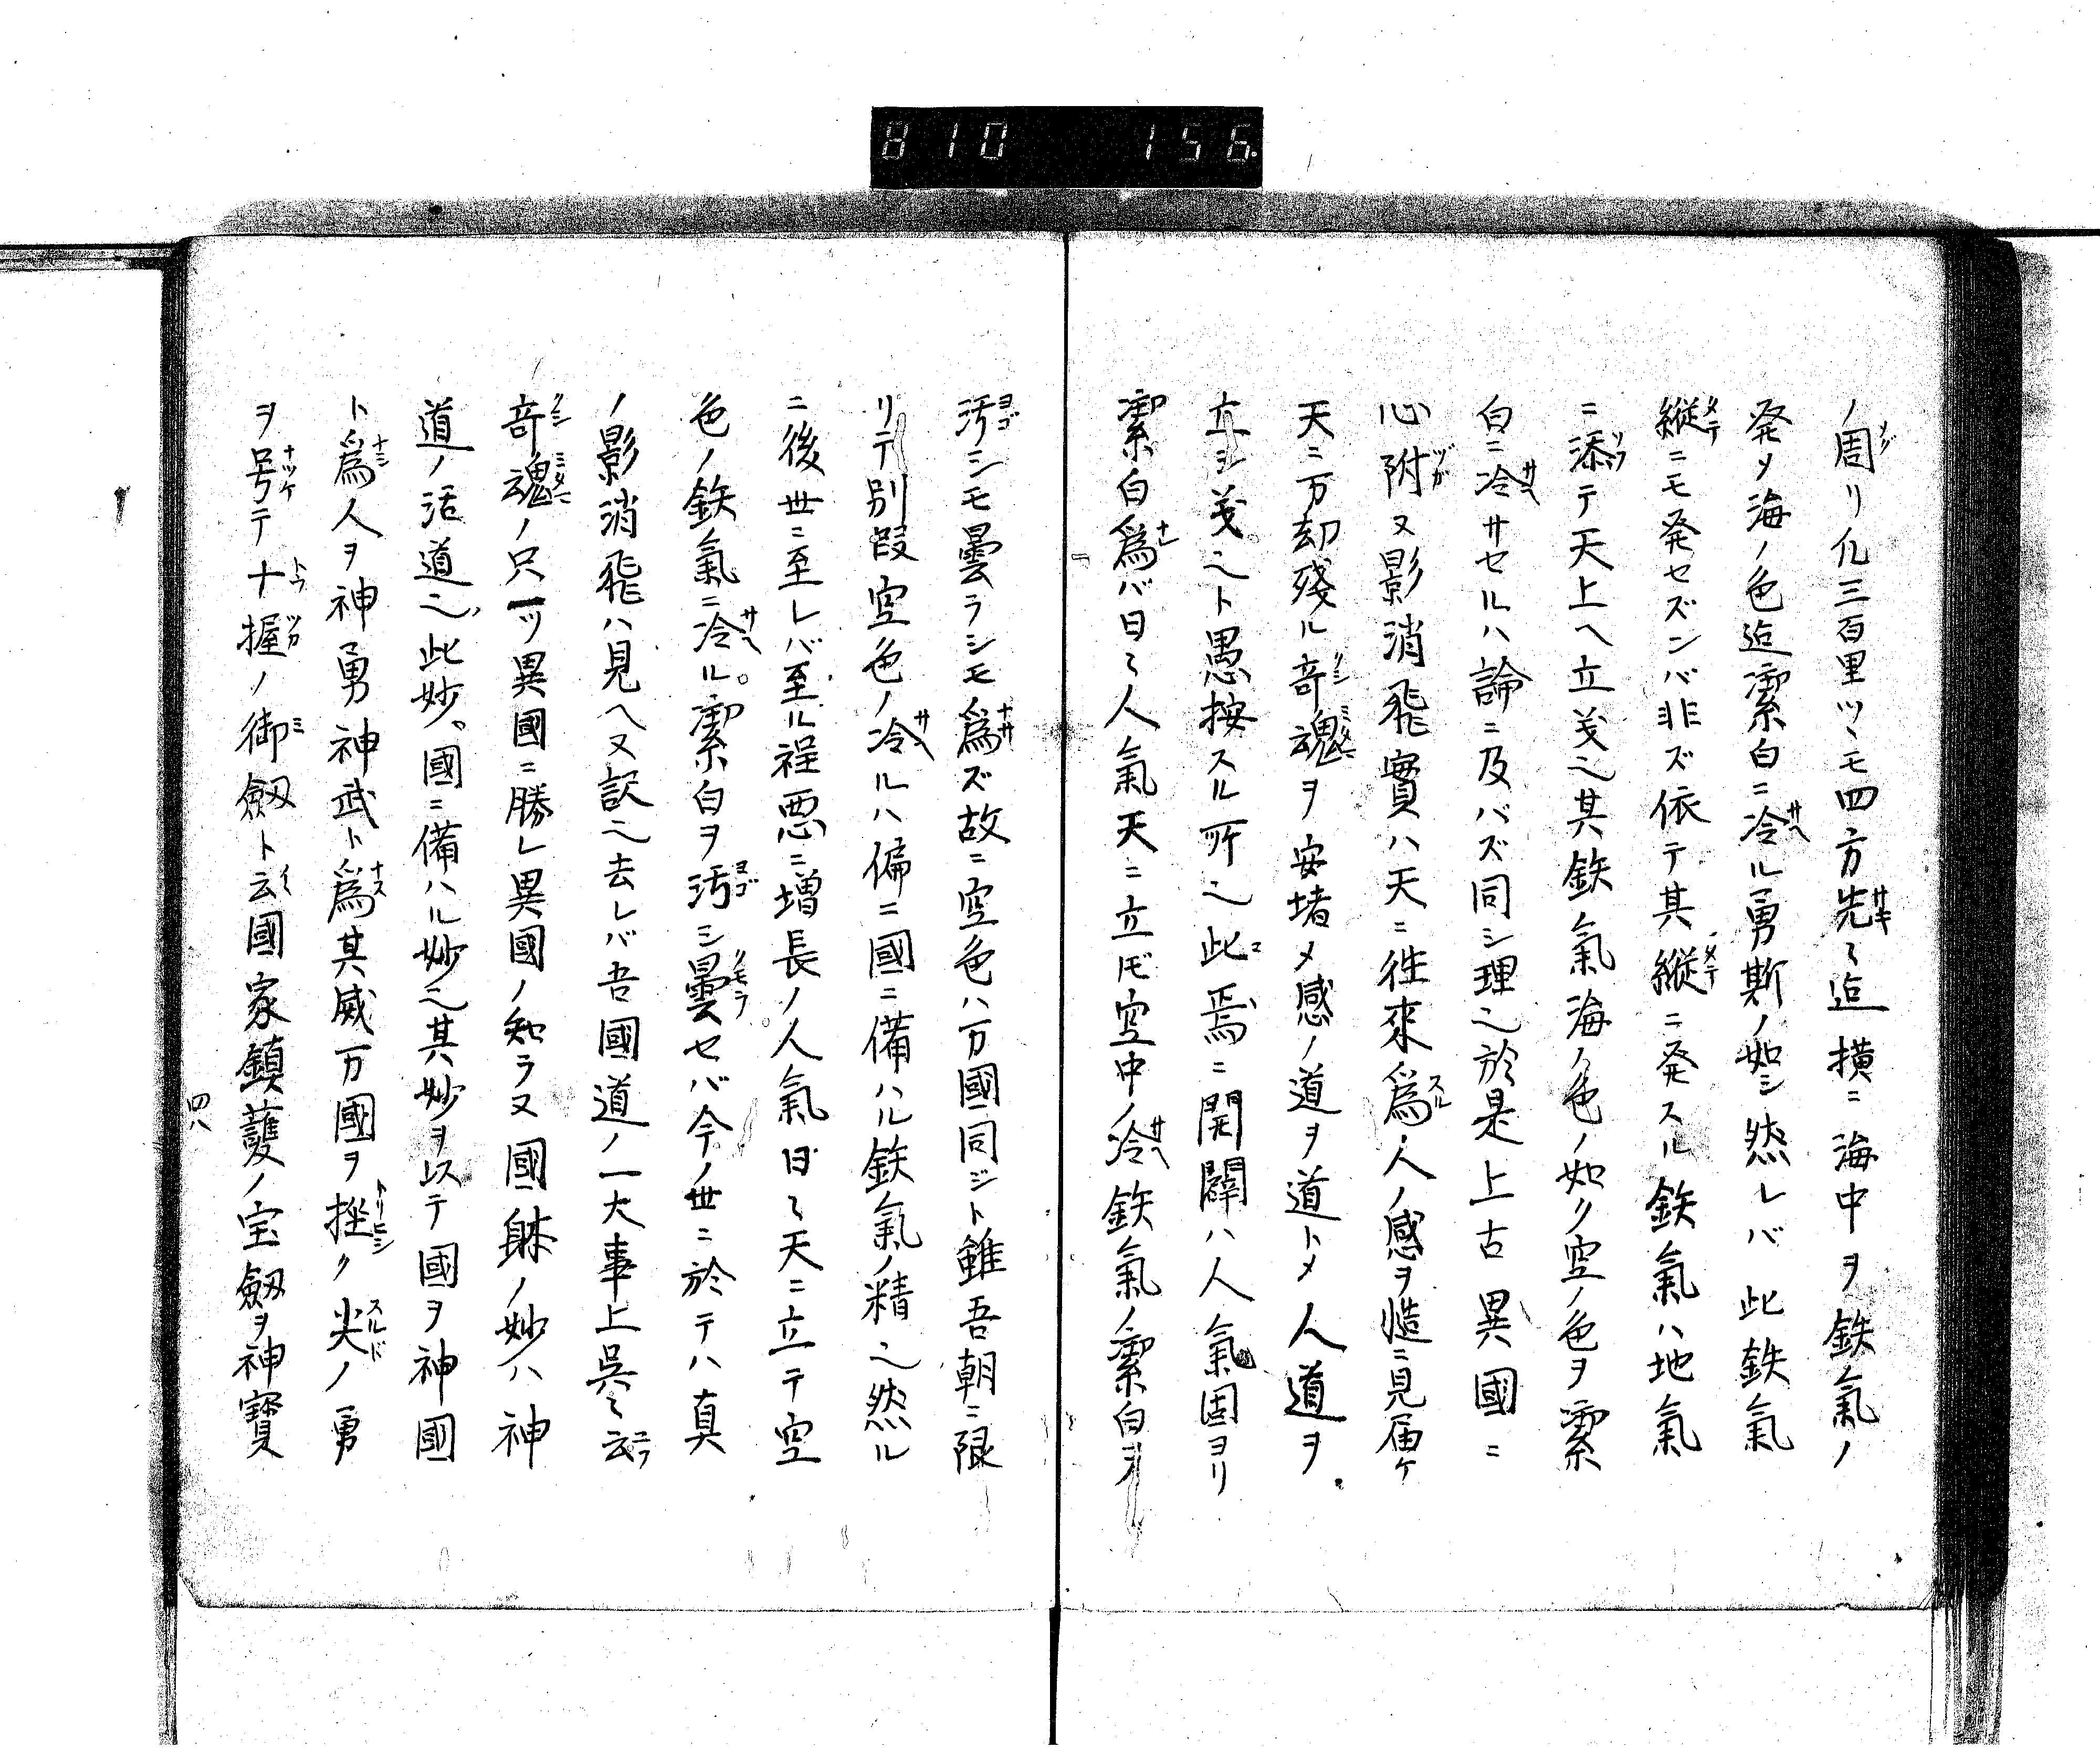 810 156
ノ周リ凢三百里ツヽモ四方先〻迠横ニ海中ヲ鉄氣ノ
発メ海ノ色迠潔白ニ冷ル勇斯ノ如シ然レバ此鉄氣
縦ニモ発セズンバ非ズ依テ其縦ニ発スル鉄氣ハ地氣
ニ添テ天上ヘ立義也其鉄氣海ノ色ノ如ク空ノ色ヲ潔
白ニ冷サセルハ論ニ及バズ同シ理也於是上古異國ニ
心附ヌ影消飛實ハ天ニ徃來爲人ノ感ヲ慥ニ見届ケ
天ニ万却殘ル竒魂ヲ安堵メ感ノ道ヲ道トメ人道ヲ
立シ義也ト愚按スル所也此焉ニ開闢ハ人氣固ヨリ
潔白爲バ日〻人氣天ニ立ドモ空中ノ冷鉄氣ノ潔白ヲ
汚シモ曇ラシモ爲ズ故ニ空色ハ万國同ジト雖吾朝ニ限
リテ別段空色ノ冷ルハ偏ニ國ニ備ハル鉄氣ノ精也然ル
ニ後世ニ至レバ至ル程悪ニ増長ノ人氣日〻天ニ立テ空
色ノ鉄氣ニ冷ル潔白ヲ汚シ曇セバ今ノ世ニ於テハ真
ノ影消飛ハ見ヘヌ訳也去レバ吾國道ノ一大事上呉〻云
竒魂ノ只一ツ異國ニ勝レ異國ノ知ラヌ國躰ノ妙ハ神
道ノ活道也此妙國ニ備ハル妙也其妙ヲ以テ國ヲ神國
ト爲人ヲ神勇神武ト爲其威万國ヲ挫ク尖ノ勇
ヲ号テ十握ノ御劔ト云國家鎮護ノ宝劔ヲ神寶
四八